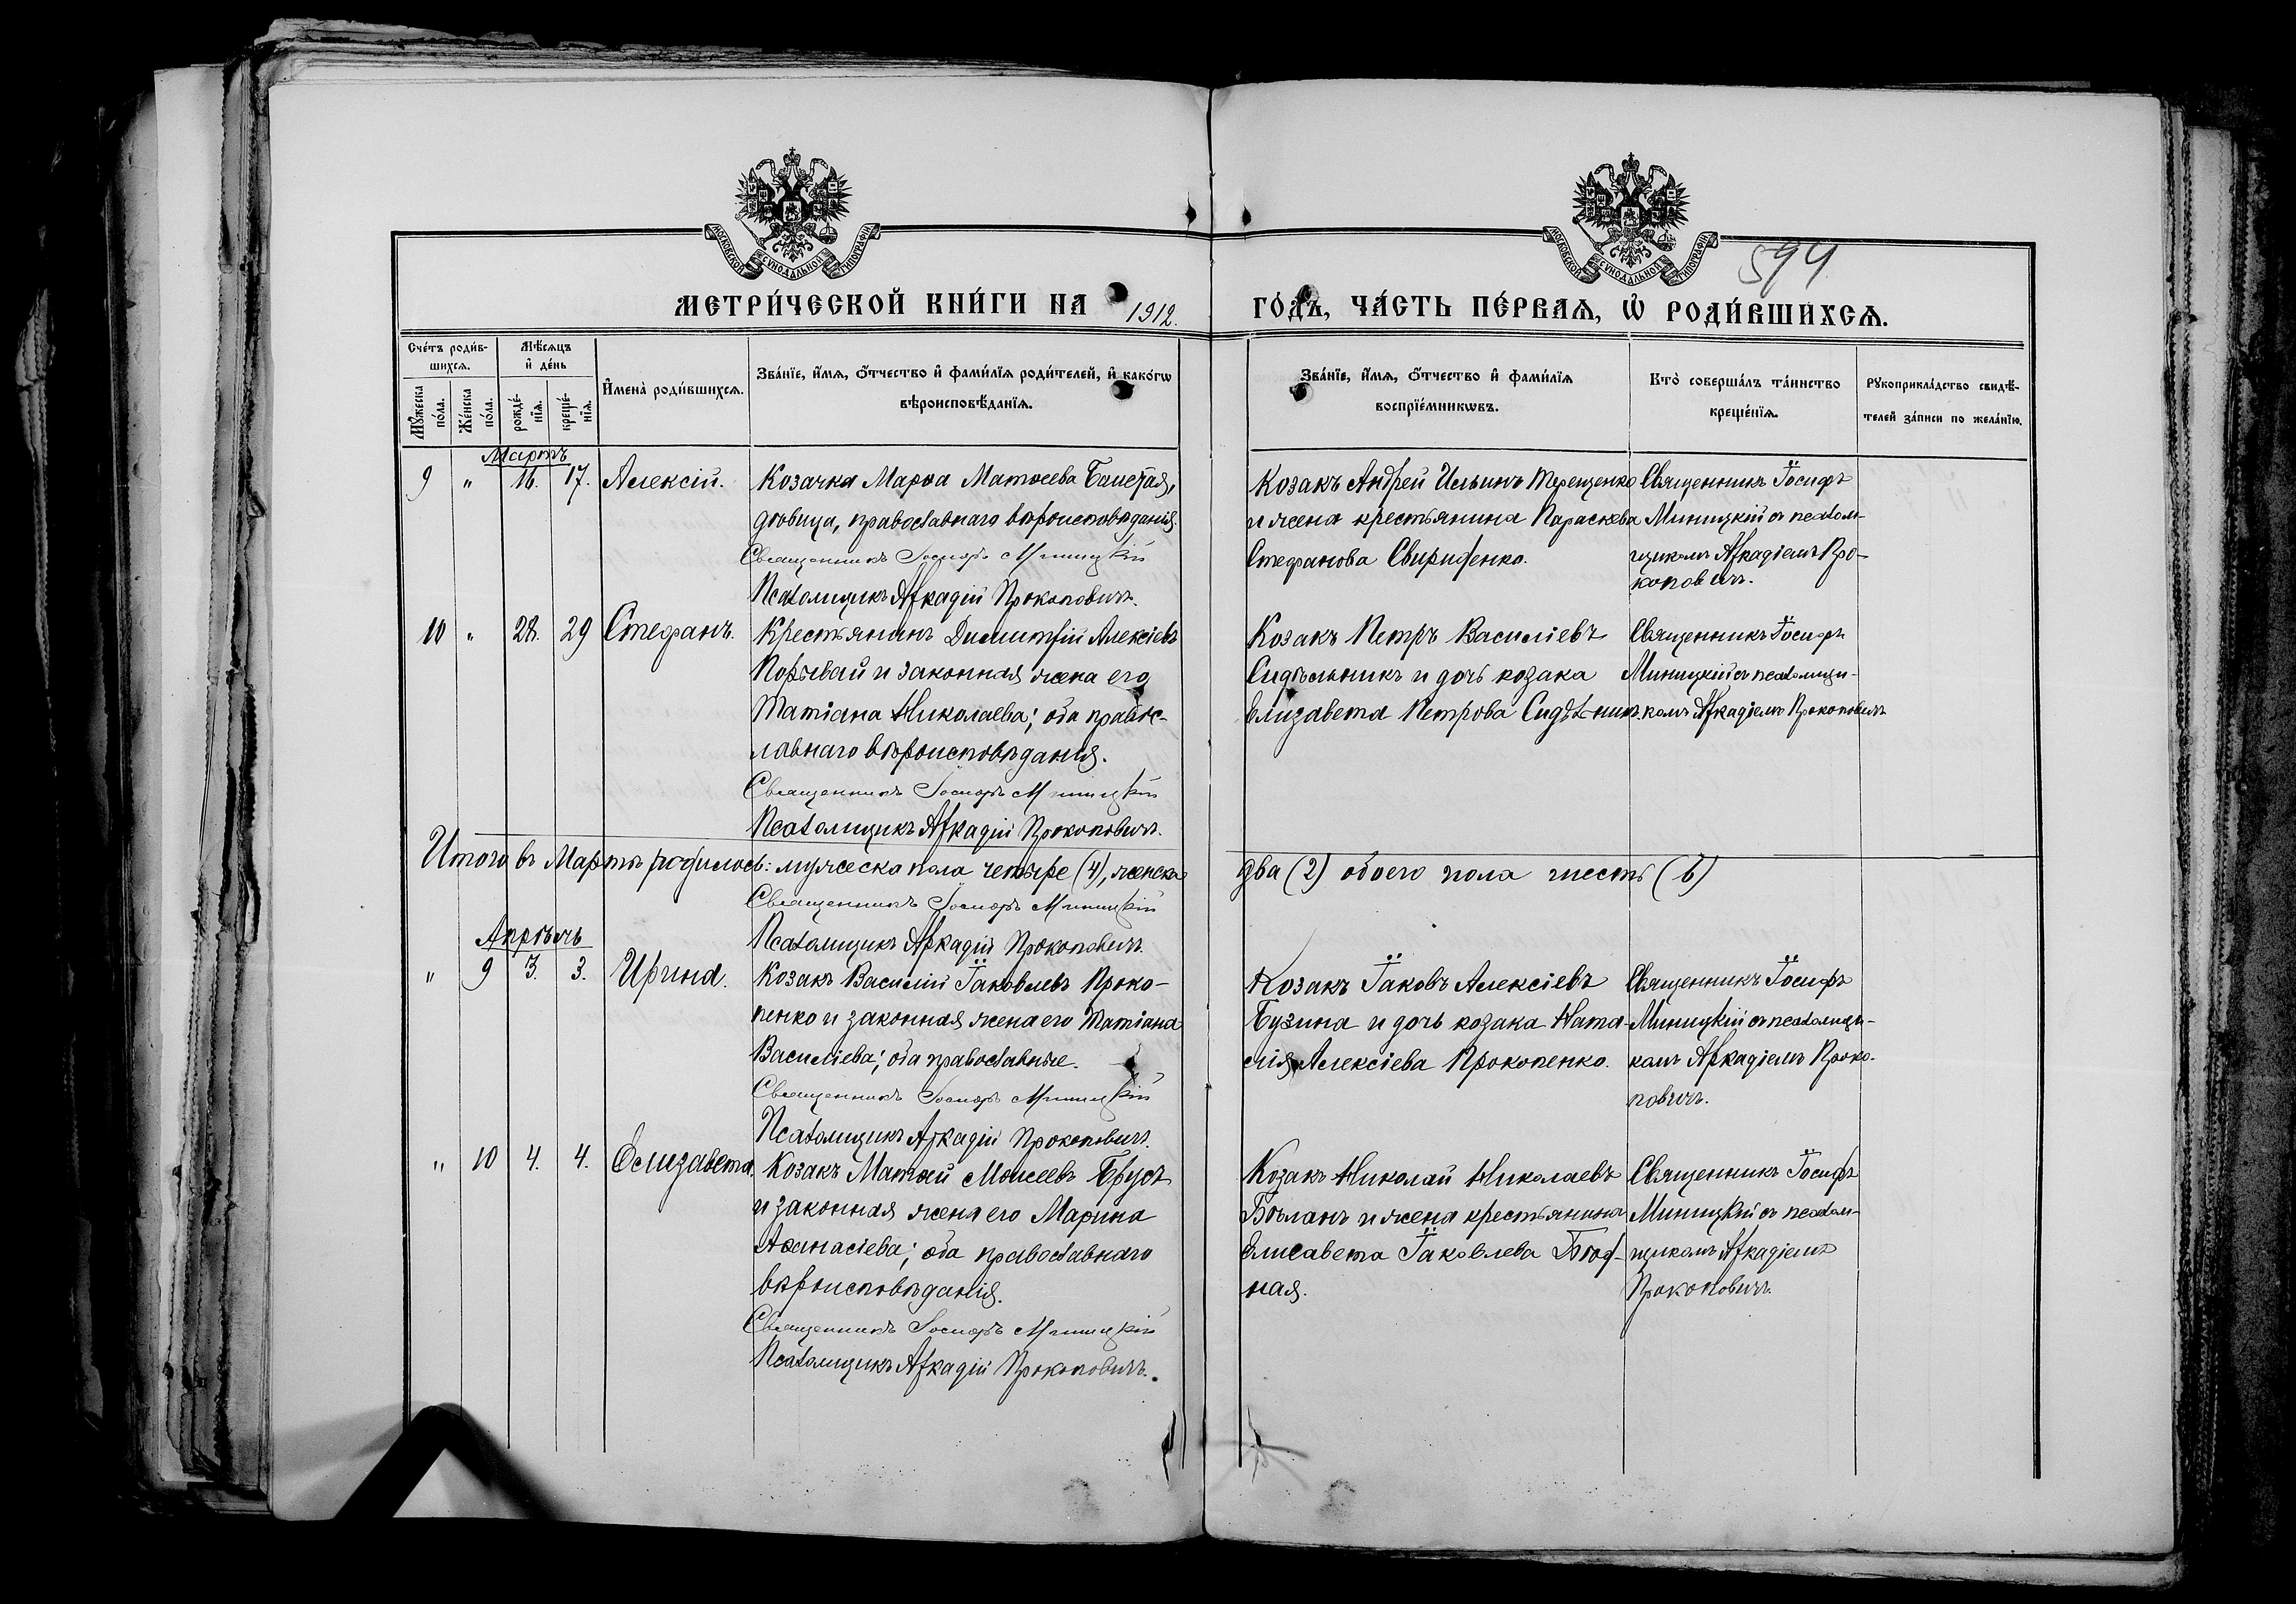 МОСКОВСКОЙ СѴНОДАЛЬНОЙ ТИПОГРАФІИ
МОСКОВСКОЙ СѴНОДАЛЬНОЙ ТИПОГРАФІИ
594
МЕТРИ́ЧЕСКОЙ КНИ́ГИ НА 1912. ГО́ДЪ, ЧА́СТЬ ПЕ́РВАЯ, Ѡ҆ РОДИ́ВШИХСЯ.
Сче́тъ роди́в-
шихся.
Мꙋ́жеска по́ла.
Же́нска по́ла.
Мѣ́сяцъ и҆ де́нь
рожде́-нїя.
креще́-нїя.
И҆мена̀ роди́вшихся.
Зва́нїе, и҆́мя, ѻ҆́тчество и҆ фами́лїя роди́телей, и҆ како́гѡ
вѣроисповѣ́данїя.
Зва́нїе, и҆́мя, ѻ҆́тчество и҆ фами́лїя
воспрїе́мникѡвъ.
Кто̀ соверша́лъ та́инство
креще́нїя.
Рꙋкоприкла́дство свидѣ́-
телей за́писи по жела́нїю.
Мартъ
9 " 16. 17. Алексій.
Козачка Марѳа Матѳеева
дѣвица, православнаго вѣроисповѣданія.
Священникъ Іосифъ Миницкій
Псаломщикъ Аркадій Прокоповичъ.
Козакъ Андрей Ильинъ Терещенко
и жена крестьянина Параскева
Стефанова Свириденко.
Священникъ Іосифъ
Миницкій съ псалом-
щикомъ Аркадіемъ Про-
коповичъ.
10 " 28. 29 Стефанъ.
Крестьянинъ Димитрій Алексіевъ
Порывай и законная жена его
Татіана Николаева; оба правос-
лавнаго вѣроисповѣданія.
Священникъ Іосифъ Миницкій
Псаломщикъ Аркадій Прокоповичъ.
Козакъ Петръ Василіевъ
Сидѣльникъ и дочь козака
Елизавета Петрова Сидѣльник.
Священникъ Іосифъ
Миницкій съ псаломщи-
комъ Аркадіемъ Прокоповичъ
Итого въ Мартѣ родилось: мужеска пола четыре (4), женска два (2) обоего пола шесть (6)
Священникъ Іосифъ Миницкій
Псаломщикъ Аркадій Прокоповичъ.
Апрѣль
" 9 3. 3. Ирина.
Козакъ Василій Іаковлевъ Проко-
пенко и законная жена его Татіана
Василіева; оба православные.
Священникъ Іосифъ Миницкій
Псаломщикъ Аркадій Прокоповичъ.
Козакъ Іаковъ Алексіевъ
Бузина и дочь козака Ната-
лія Алексіева Прокопенко.
Священникъ Іосифъ
Миницкій съ псаломщи-
комъ Аркадіемъ Проко-
повичъ.
" 10 4. 4. Елизавета.
Козакъ Матѳей Моисеевъ Брусъ
и законная жена его Марина
Аѳанасіева; оба православнаго
вѣроисповѣданія.
Священникъ Іосифъ Миницкій
Псаломщикъ Аркадій Прокоповичъ.
Козакъ Николай Николаевъ
Бѣланъ и жена крестьянина
Елисавета Іаковлева Бѣд-
ная.
Священникъ Іосифъ
Миницкій съ псалом-
щикомъ Аркадіемъ
Прокоповичъ.